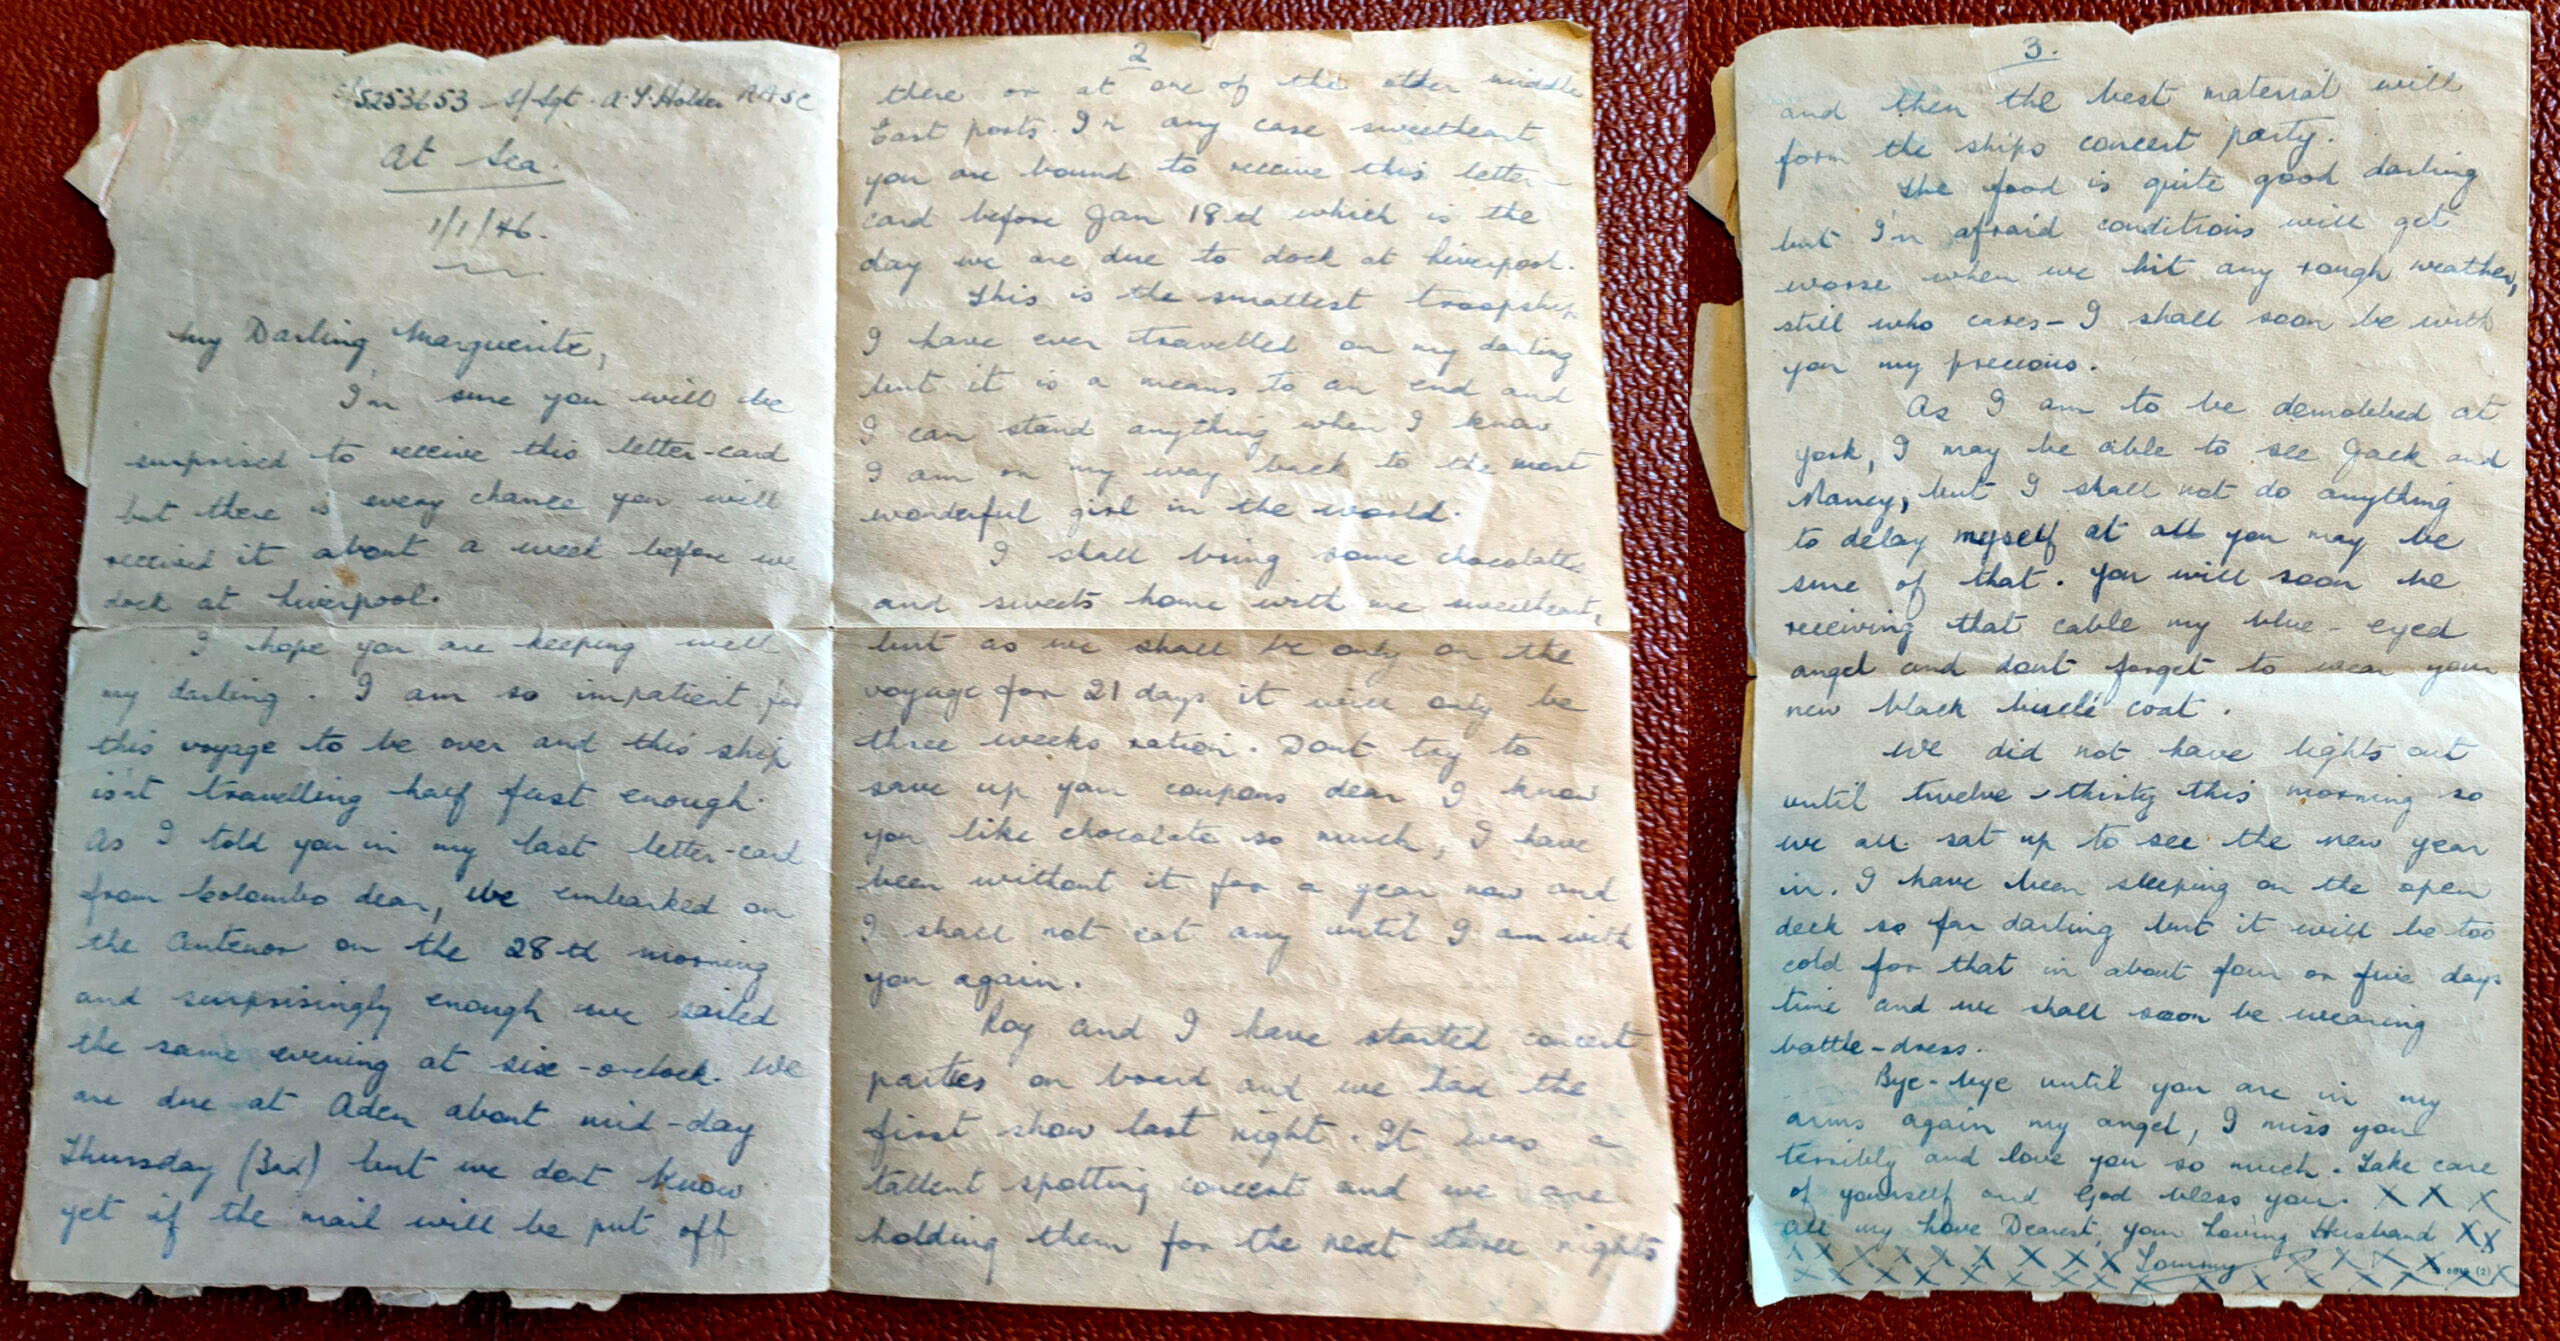 S/5253653 S/Sgt. A.T. Holder RASC
At Sea.
1/1/46.
My Darling Marguerite,
I'm sure you will be
surprised to receive this letter-card
but there is every chance you will
received it about a week before we
dock at Liverpool.
I hope you are keeping well
my darling. I am so impatient for
this voyage to be over and this ship
isn't travelling half fast enough.
As I told you in my last letter-card
from Colombo dear, we embarked on
the Antenor on the 28th morning
and surprisingly enough we sailed
the same evening at six-o-clock. We
are due at Aden about mid-day
Thursday (3rd) but we dont know
yet if the mail will be put off
2
there or at one of the other middle
East ports. In any case sweetheart
you are bound to receive this letter-
card before Jan 18th which is the
day we are due to dock at Liverpool.
This is the smallest troopship
I have ever travelled on my darling
but it is a means to an end and
I can stand anything when I know
I am on my way back to the most
wonderful girl in the world.
I shall bring some chocolate
and sweets home with me sweetheart,
but as we shall be only on the
voyage for 21 days it will only be
three weeks ration. Dont try to
save up your coupons dear I know
you like chocolate so much, I have
been without it for a year now and
I shall not eat any until I am with
you again.
Roy and I have started concert
parties on board and we had the
first show last night. It was a
tallent spotting concert and we are
holding them for the next three nights
3.
and then the best material will
form the ships concert party.
The food is quite good darling
but I'm afraid conditions will get
worse when we hit any rough weather,
still who cares - I shall soon be with
you my precious.
As I am to be demobbed at
York, I may be able to see Jack and
Nancy, but I shall not do anything
to delay myself at all you may be
sure of that. You will soon be
receiving that cable my blue-eyed
angel and dont forget to wear your
new black coat.
We did not have lights out
until twelve-thirty this morning so
we all sat up to see the new year
in. I have been sleeping on the open
deck so far darling but it will be too
cold for that in about four or five days
time and we shall soon be wearing
battle-dress.
Bye-bye until you are in my
arms again my angel, I miss you
terribly and love you so much. Take care
of yourself and God bless you. X X X
All my love Dearest, your Loving Husband X X
X X X X X X X X X Tommy X X X X X X
X X X X X X X X X X X X X X X (2)